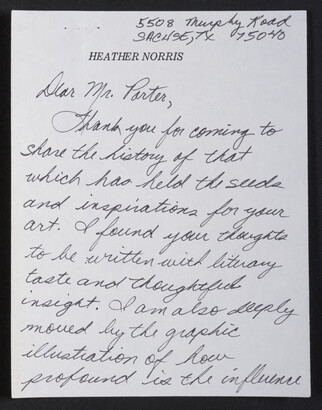 5508 Murphy Road
SACHSE, TX 75040
HEATHER NORRIS
Dear Mr. Porter,
Thank you for coming to
share the history of that
which has held the seeds
and inspirations for your
art. I found your thoughts
to be written with literary
taste and thoughtful
insight. I am also deeply
moved by the graphic
illustration of how
profound is the influence